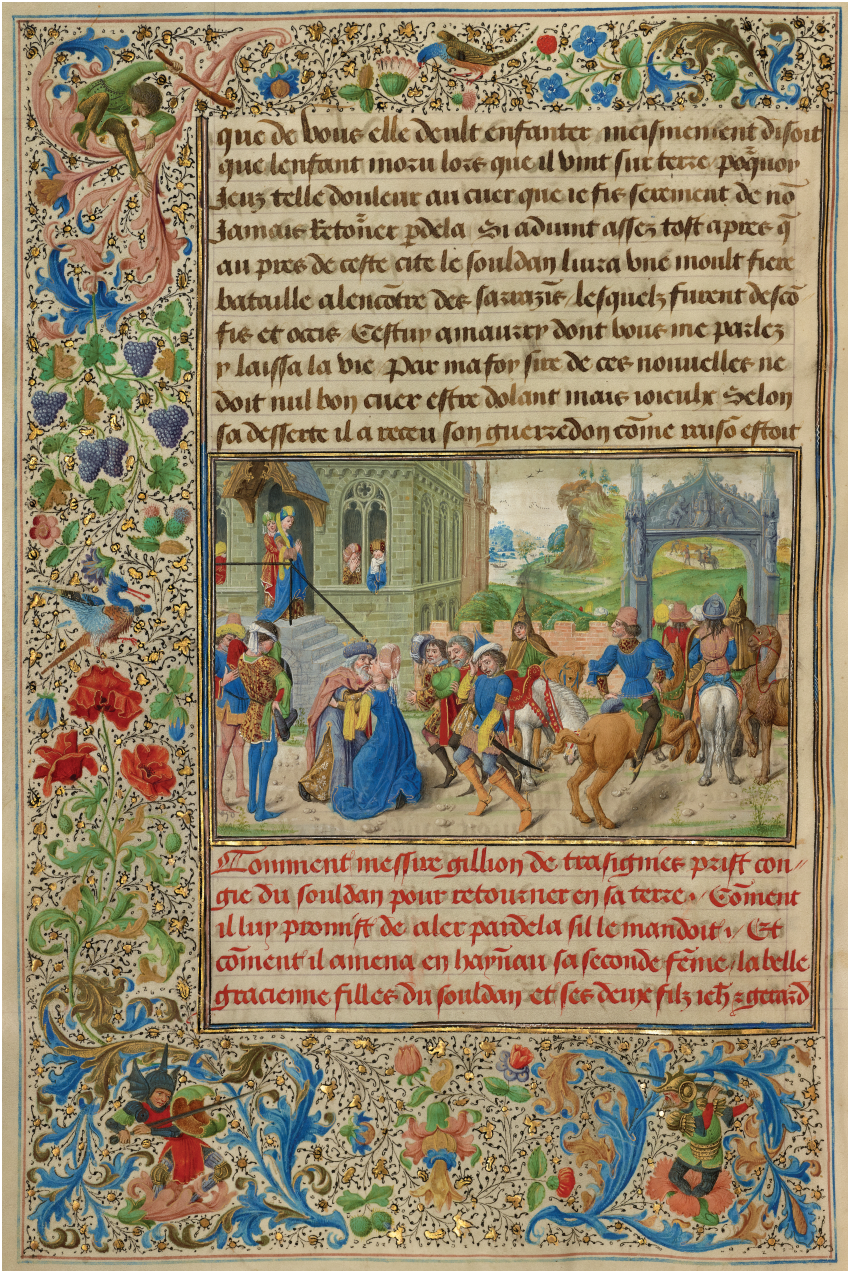 que de vous elle deult enfanter meismement disoit
que lenfant moru lors que il vint sur terre poq̃uoy
Jeuz telle douleur au cuer que ie fis serement de nõ
Jamais Retõner p̱dela Si aduint assez tost apres q̃
au pres de ceste cite le souldan liura vne moult fiere
bataille alencõtre des sarrazĩs / lesquelz furent descõ
fis et occis Cestuy amaurry dont vous me parlez
y laissa la vie Par ma foy sire de ces nouuelles ne
doit nul bon cuer estre dolant mais ioieulx Selon
sa desserte il a receu son guerredon cõme raisõ estoit
Comment messire gillion de trasignies prist con//
gie du souldan pour retourner en sa terre. Cõment
il luy promist de aler pardela sil le mandoit. Et
cõment il amena en haynau sa seconde fẽme / la belle
gracienne filles du souldan et ses deux filz ieh̃ ⁊ gerard